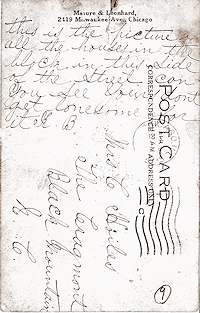 Masure & Leonhard,
2119 Milwaukee Ave., Chicago
this is the picture
all the houses in the
block in this side
of the street con
you see
get lonesome for
it G B
POST CARD
CORRESPONDENCE ON
ADDRESS ONLY
Miss C
The Cragmont
Black Mountain
N. C.
9